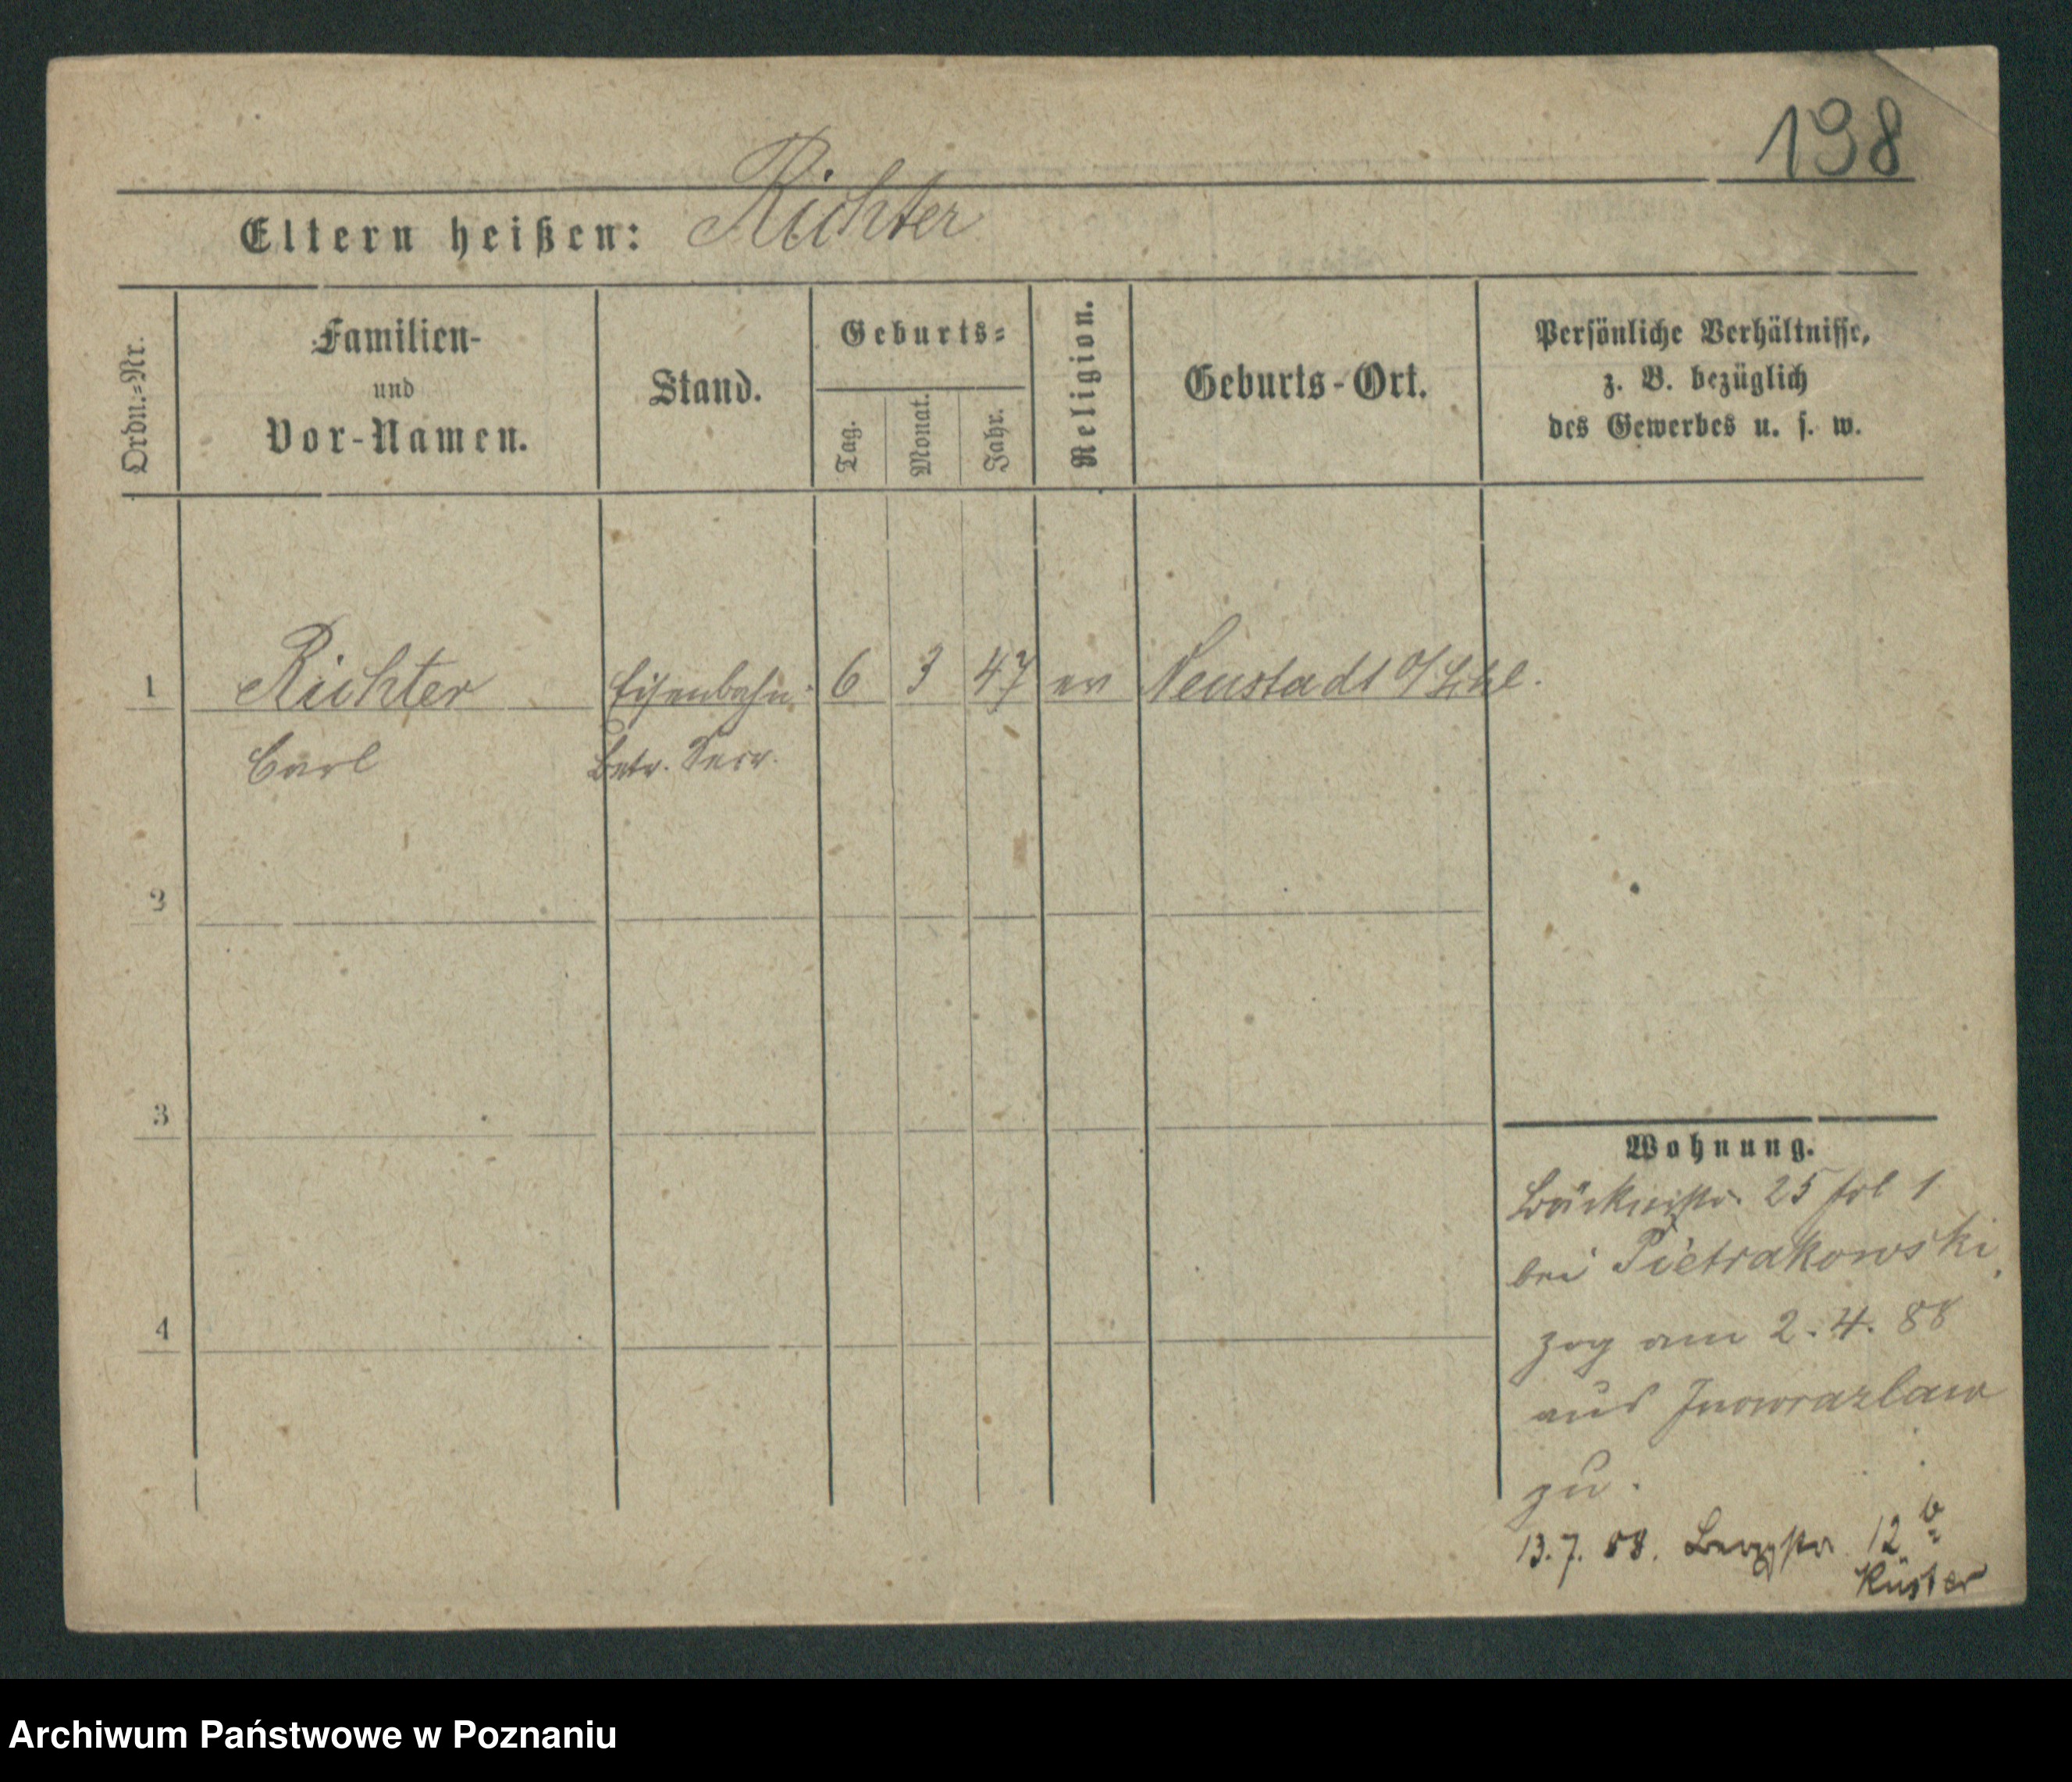 198
Eltern heißen: Richter
Ordn.=Nr.
Familien-
und
Vor-Namen.
Stand.
Geburts=
Tag.
Monat.
Jahr.
Religion.
Geburts-Ort.
Persönliche Verhältnisse,
z. B. bezüglich
des Gewerbes u. s. w.
1 Richter Eisenbahn- 6 3 47 ev Neustadt o/Schl.
Carl Betr. Secr.
2
3
4
Wohnung.
Bäckerstr. 25 1
bei Pietrakowski
zog am 2.4.88
aus Inowrazlaw
zu.
13.7.88. Bergstr 12 b
Küster
Archiwum Państwowe w Poznaniu